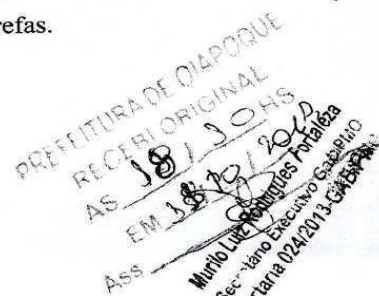 refas.
PREFEITURA DE OIAPOQUE
RECEBI ORIGINAL
AS 18 / 30 HS
EM
ASS
Murilo Luiz Rodrigues Fortaleza
Secretário Executivo
Portaria 024/2013-GAB/PMO